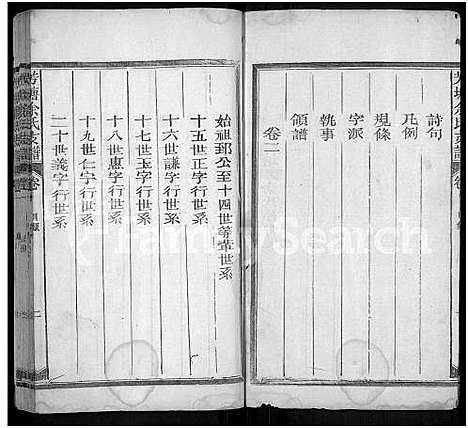 詩句
凡例
規條
字派
執事
領譜
卷二
始祖郢公至十四世等輩世系
十五世正字行世系
十六世謙字行世系
十七世玉字行世系
十八世惠字行世系
十九世仁字行世系
二十世義字行世系
芳塘余氏支譜
卷
二
FamilySearch